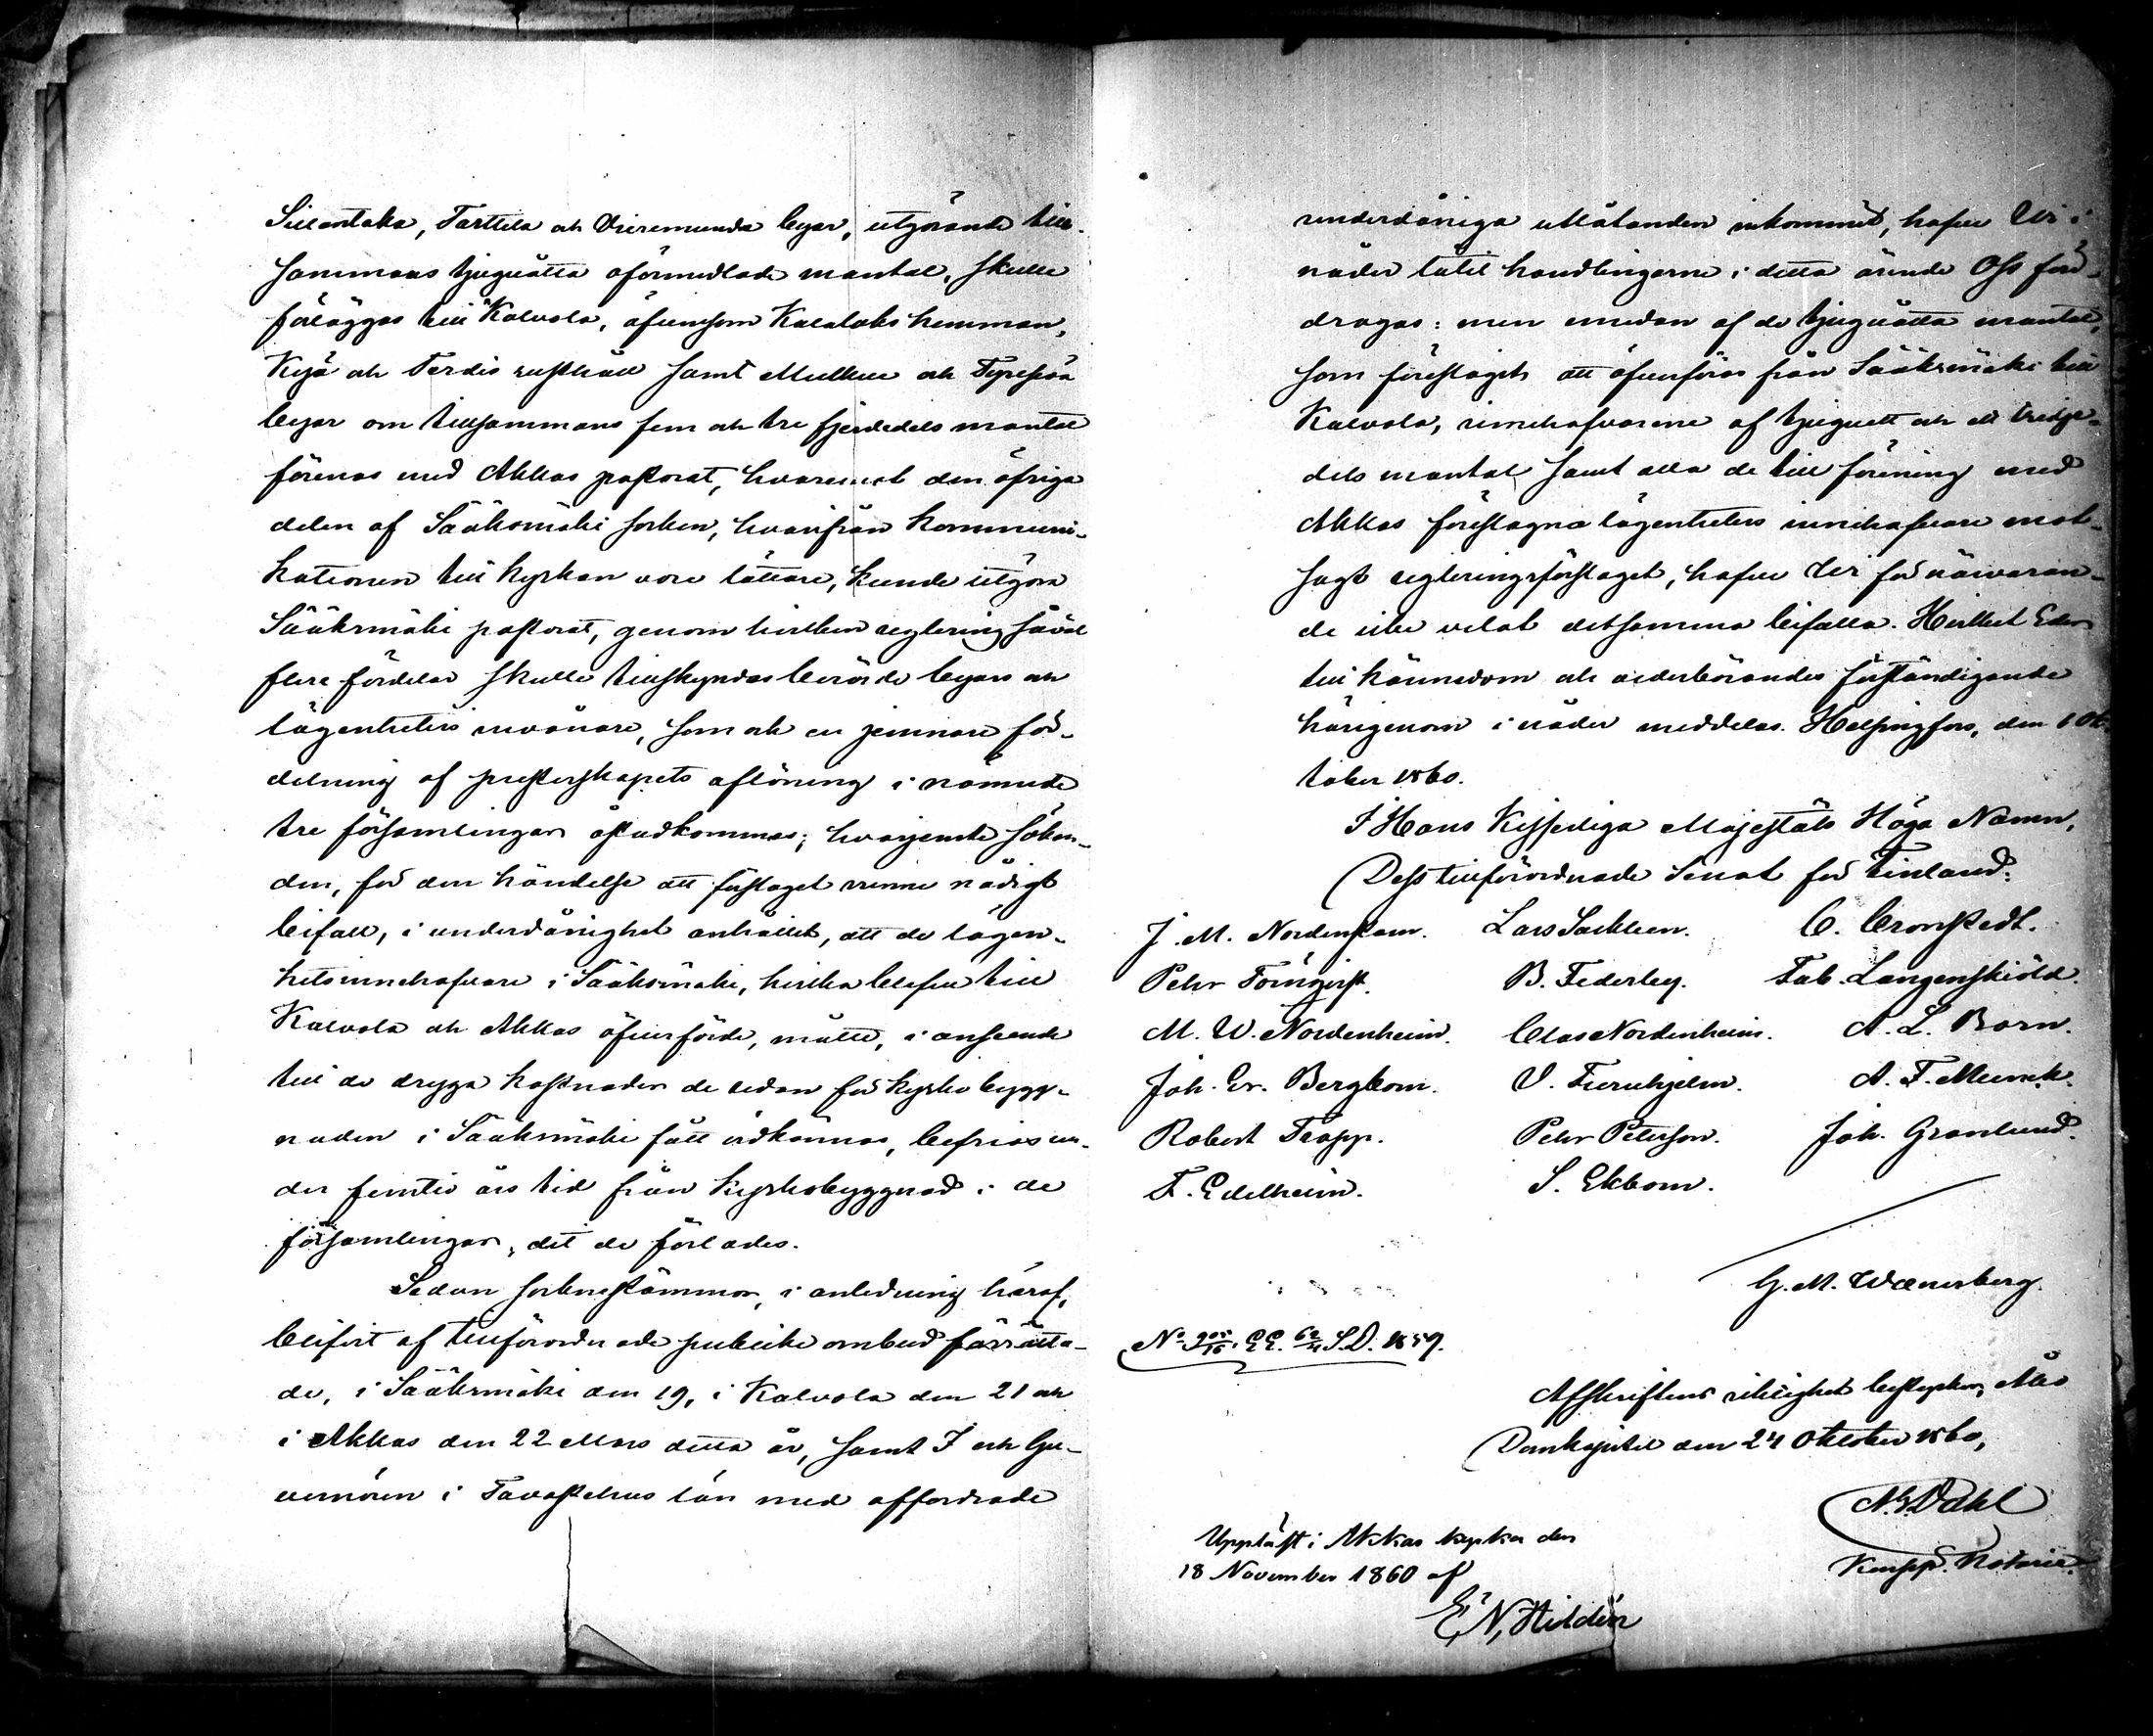 Sillantaka, Tarttila och Vieremunda byar, utgörande till-
sammans tjuguåtta oförmedlade mantal, skulle
föläggas till Kalvola, äfvensom Kalaloks hemman,
Kyjä och Terdis rusthåll samt Mälkee och
byar om tillsammans fem och tre fjerdedels mantal
förenas med Akkas pastorat, hvaremot den öfriga
delen af Sääksmäki socken, hvarifrån kommuni-
kationen till kyrkan vore lättare, kunde utgöra
Sääksmäki pastorat, genom hvilken reglering såväl
flere fördelar skulle tillskyndas berörde byars och
lägenheters invånare, som ock en jemnare för-
delning af presterskapets aflöning i nämnde
tre församlingar åstadkommas; hvarjemte sökan-
den, för den händelse att förslaget vunne nådigt
bifall, i underdånighet anhållit, att de lägen-
hetsinnehafvare i Sääksmäki, hvilka blefve till
Kalvola och Akkas öfverförde, måtte, i anseende
till de dryga kostnader de redan för kyrkobygg-
naden i Sääksmäki fått vidkännas, befrias un-
der femtio års tid från kyrkobyggnad i de
församlingar, dit de förlades.
Sedan sockenstämmor, i anledning häraf,
blifvit af tillförordnade publike ombud förrätta-
de, i Sääksmäki den 19, i Kalvola den 21 och
i Akkas den 22 Mars detta år, samt I och Gu-
vernören i Tavastehus län med affordrade
underdåniga utlåtanden inkommit, hafve Vi i
nåder låtit handlingarne i detta ärende Oss före-
dragas: men emedan af de tjuguåtta mantal,
som föreslagits att öfverföras från Sääksmäki till
Kalvola, innehafvarene af tjuguett och ett tredje-
dels mantal samt alla de till förening med
Akkas föreslagna lägenheters innehafvare mot-
sagt regleringsförslaget, hafve Vi för närvaran-
de icke velat detsamma bifalla. Hvilket Eder
till kännedom och vederbörandes förståndigande
härigenom i nåder meddelas. Helsingfors, den 1 Ok-
tober 1860.
I Hans Kejserliga Majestäts Höga Namn,
Dess tillförordnade Senat för Finland:
J. M. Nordenstam. Lars Sacklen. C. Cronstedt.
Pehr Törnqvist. B. Federley. Fab. Langenskiöld.
M. W. Nordenheim. Clas Nordenheim. A. L. Born.
Joh. Er. Bergbom. V. Furuhjelm. A. F. Munck.
Robert Trapp. Pehr Peterson. Joh. Granlund.
F. Edelheim. S. Ekbom.
G. M. Wænerberg.
No 905/16. E.E. 62/4 S.D. 1859.
Afskriftens riktighet bestyrker, Åbo
Domkapitel den 24 Oktober 1860,
Dahl
Notarie.
Uppläst i Akkas kyrka den
18 November 1860 af
E, N, Hildén